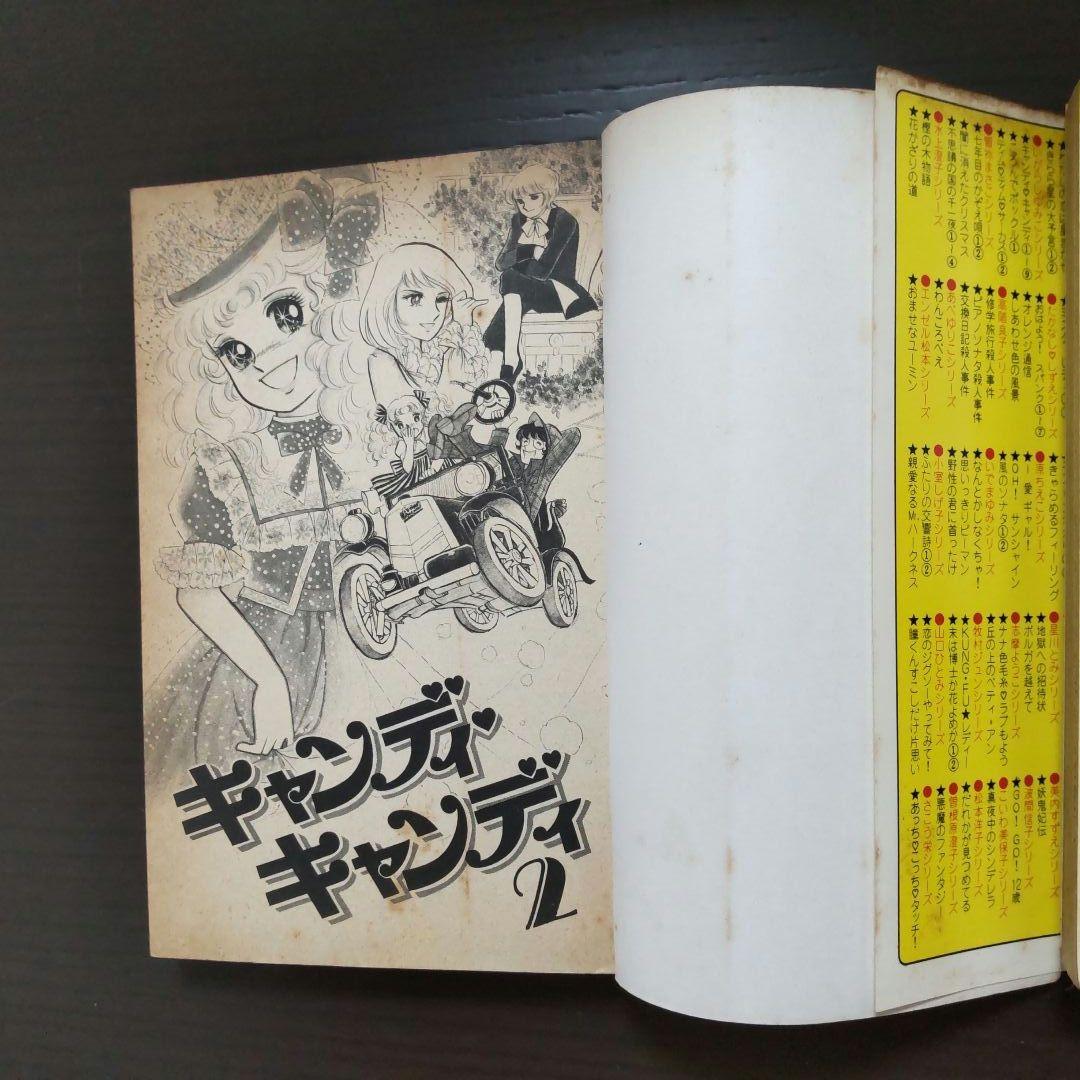 キャンディ
キャンディ
2
きたる星の大予言①②
●いがらしゆみこシリーズ
★キャンディ♡キャンディ①~⑨
★ティム♡ティム♡サーカス①②
●曽祢まさこシリーズ
★七年目のかぞえ唄①②
★闇に消えたクリスマス
★不思議の国の千一夜①~④
●水上澄子シリーズ
★樫の木物語
★花かざりの道
●たかなし♡しずえシリーズ
★おはよう!スパンク①~⑦
★オレンジ通信
★しあわせ色の風景
●高階良子シリーズ
★修学旅行殺人事件
★ピアノソナタ殺人事件
★交換日記殺人事件
●あべゆりこシリーズ
★わんころべえ
●エンゼル松本シリーズ
★おませなユーミン
★きゃらめるフィーリング
●原ちえこシリーズ
★I 愛 ギャル!
★OH! サンシャイン
★風のソナタ①②
●いでまゆみシリーズ
★なんとかしなくちゃ!
★思いっきりピーマン
★野性の君に首ったけ
●小室しげ子シリーズ
★ふたりの交響詩①②
★親愛なるMr.ハークネス
●星川とみシリーズ
★地獄への招待状
★ボルガを越えて
●志摩ようこシリーズ
★ナナ色毛糸♡ラブもよう
★丘の上のベティ・アン
●牧村ジュンシリーズ
★KUNG・FU★レディー
★末は博士か花よめか①②
●山口ひとみシリーズ
★恋のジグソーやってみて!
★瞳くんすこしだけ片思い
●美内すずえシリーズ
★妖鬼妃伝
●波間信子シリーズ
★GO! GO! 12歳
●こいわ美保子シリーズ
★真夜中のシンデレラ
●松本洋子シリーズ
★だれかが見つめてる
●曽根原澄子シリーズ
★悪魔のファンタジー
●さこう栄シリーズ
★あっち♡こっち♡タッチ!